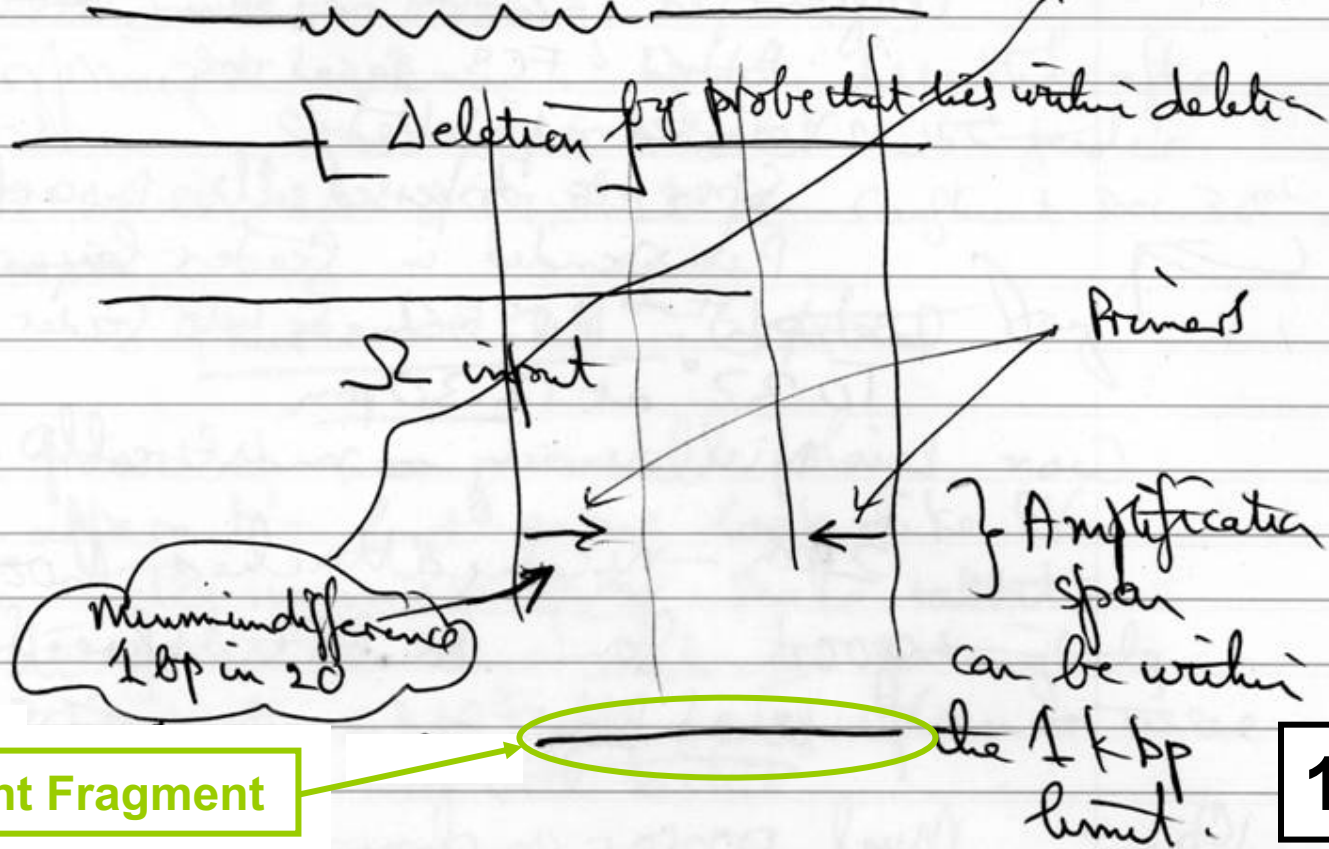 Deletion by probe that lies within deletion
Primers
Ω input
} Amplification
span
can be within
the 1 kbp
limit.
Minimum difference
1 bp in 20
nt Fragment
1